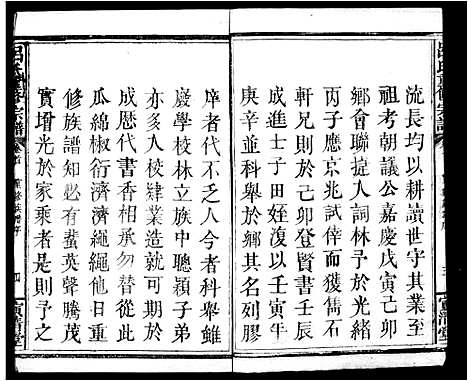 流長均以耕讀世守其業至
祖考朝議公嘉慶戊寅己卯
鄉會聯捷入詞林予於光緒
丙子應京兆試倖而獲雋石
軒兄則於己卯登賢書壬辰
成進士子田姪復以壬寅午
庚辛並科舉於鄉其名列膠
庠者代不乏人今者科舉雖
廢學校林立族中聰穎子弟
亦多入校肄業造就人材當
成歷代書香相承勿替從此
瓜綿椒衍濟濟繩繩他日重
修族譜知必有蜚英騰茂
實增光於家乘者是則予之
呂氏重修宗譜
卷首
四